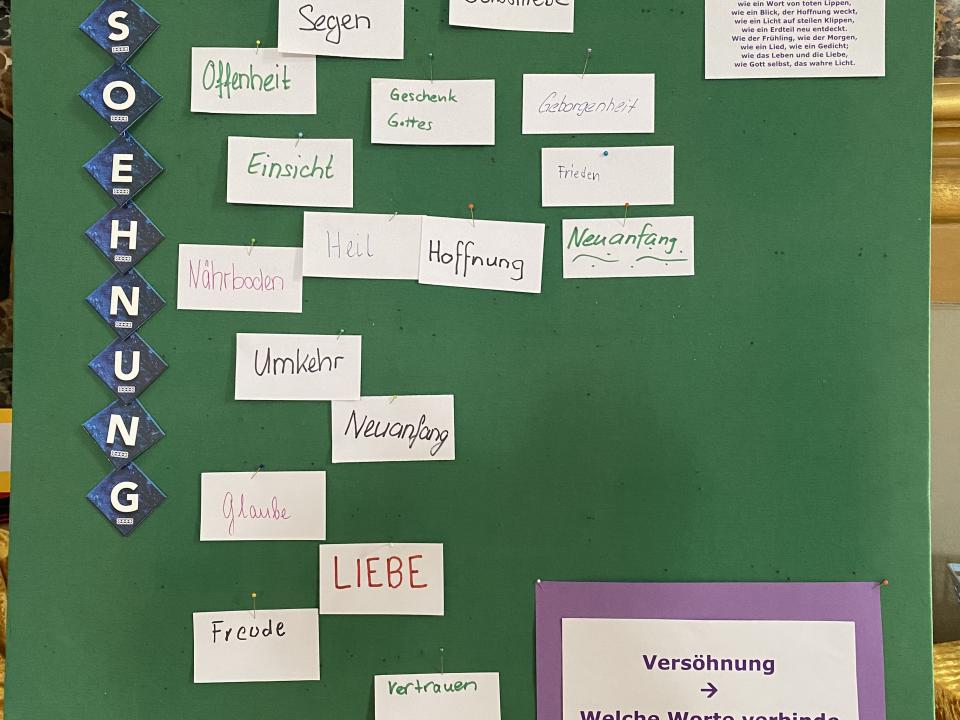 S
O
E
H
N
U
N
G
Segen
wie ein Wort von toten Lippen,
wie ein Blick, der Hoffnung weckt,
wie ein Licht auf steilen Klippen,
wie ein Erdteil neu entdeckt.
Wie der Frühling, wie der Morgen,
wie ein Lied, wie ein Gedicht;
wie das Leben und die Liebe,
wie Gott selbst, das wahre Licht.
Offenheit
Geschenk
Gottes
Geborgenheit
Einsicht
Frieden
Heil
Hoffnung
Neuanfang.
Nährboden
Umkehr
Neuanfang
Glaube
LIEBE
Freude
Vertrauen
Versöhnung
→
Welche Worte verbinde